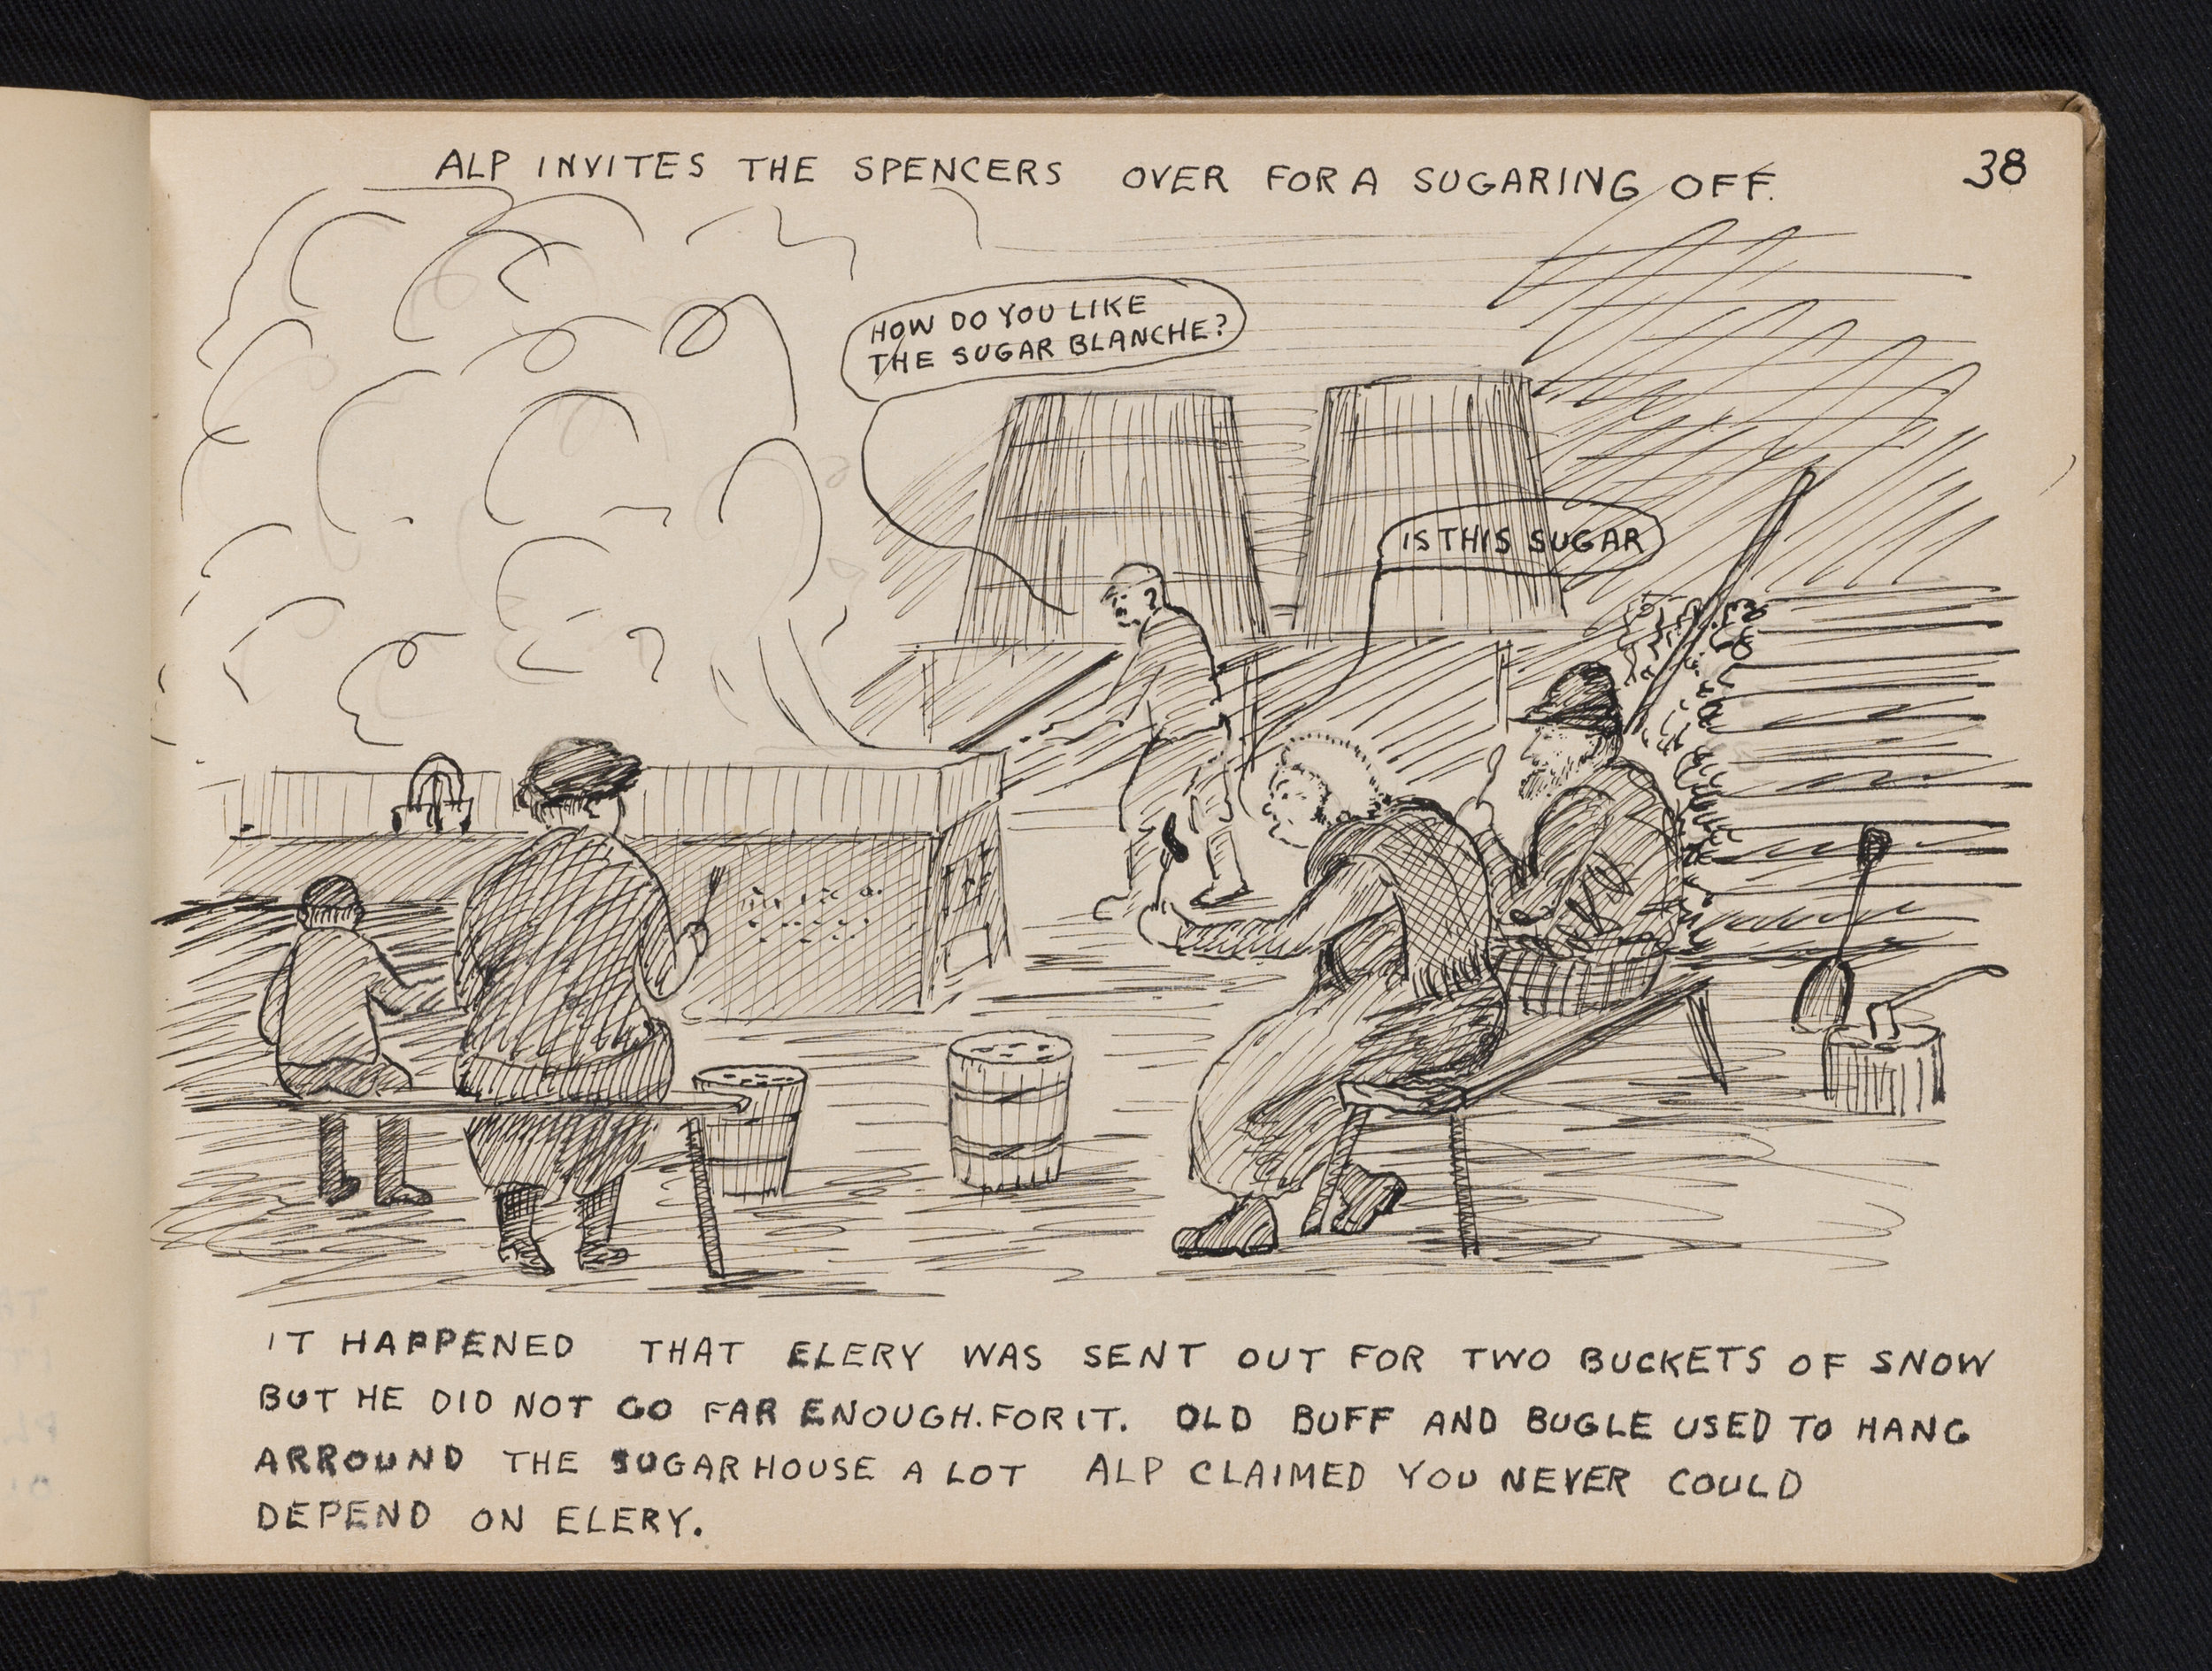 ALP INVITES THE SPENCERS OVER FOR A SUGARING OFF.
38
HOW DO YOU LIKE
THE SUGAR BLANCHE?
IS THIS SUGAR
IT HAPPENED THAT ELERY WAS SENT OUT FOR TWO BUCKETS OF SNOW
BUT HE DID NOT GO FAR ENOUGH. FOR IT. OLD BUFF AND BUGLE USED TO HANG
ARROUND THE SUGAR HOUSE A LOT ALP CLAIMED YOU NEVER COULD
DEPEND ON ELERY.